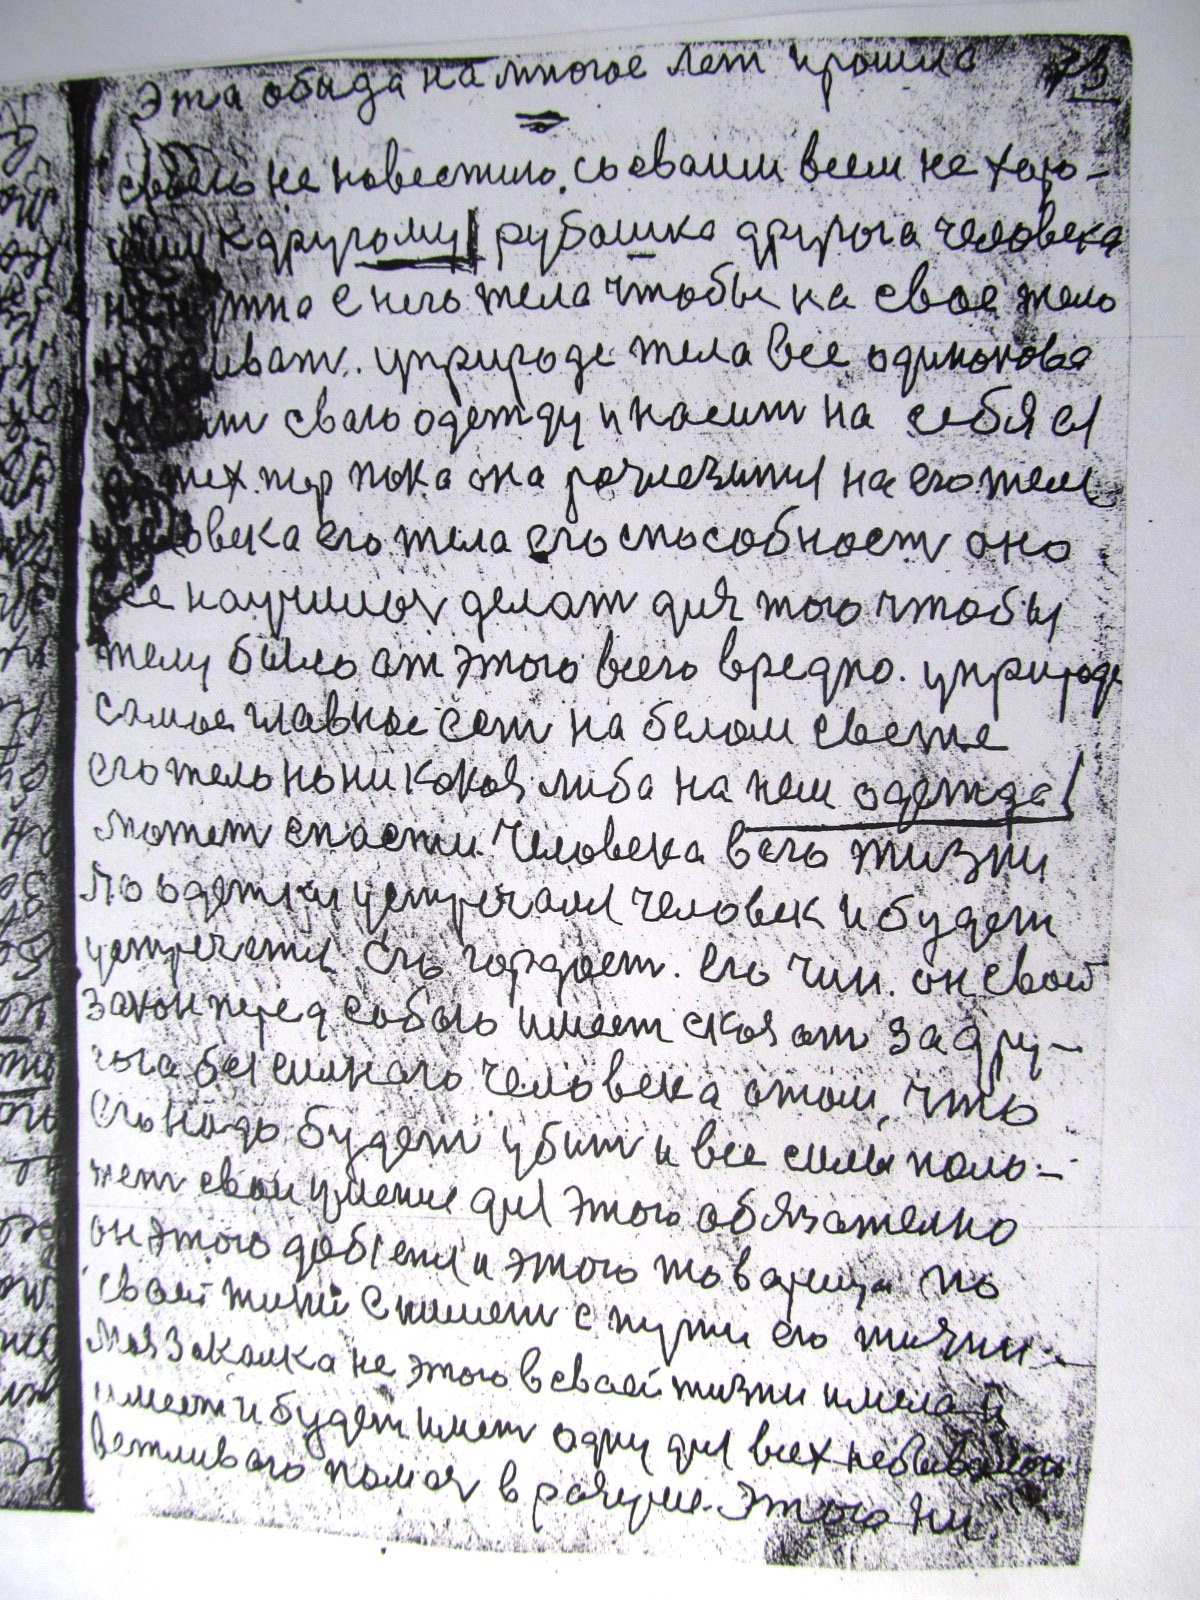 Эта обида на многое лет прошла 73
собою не новестию. со сваими всем не харо-
шим к другому рубашка другога человека
не нужна с него тела чтобы на свое тело
надиват. уприроде тела все одинокова
сваю одежду и насит на себя
тех пор пока она на его теле
человека его тела его способност оно
се научилося делат для того чтобы
телу было ат этого всего вредно. уприроде
самое главное ест на белом свете
его тело но ни какоя либа на нем одежда
может спасти человека в его жизни
по одежки устречался человек и будет
устречатся его гордост. его чин. он свой
закон перед собою имеет скоя ат за дру-
гога безсилнаго человека а том, что
его надо будет убит и все силы поло-
жет свои умение для этого обязателно
он этого добется и этого товарища по
своей жизни снимет с пути его жизни.
Моя Закалка не этого в своей жизни имела и
имеет и будет имет одну для всех небывалою
ветливаго помоч в разуме. Этого ни